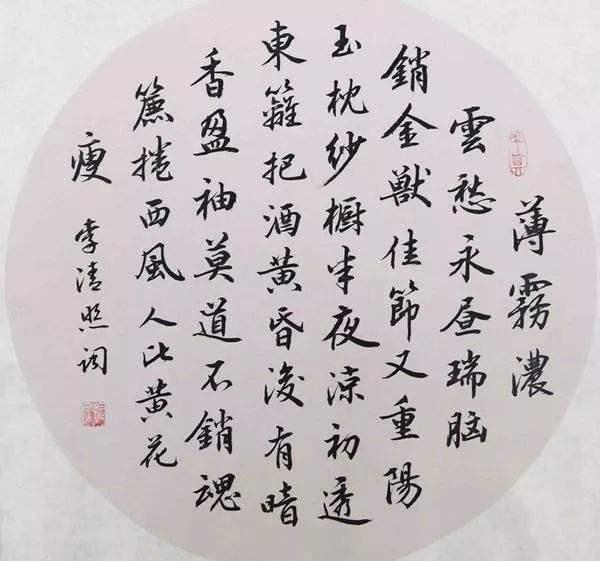 薄霧濃
雲愁永昼瑞脳
銷金獸佳節又重陽
玉枕紗櫥半夜涼初透
東籬把酒黃昏後有暗
香盈袖莫道不銷魂
簾捲西風人比黃花
瘦
李清照詞